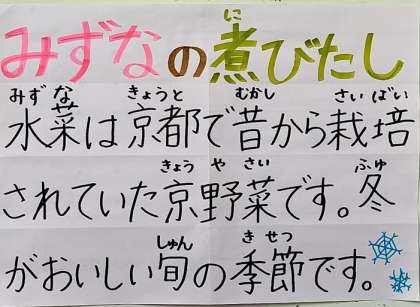 みずなの煮びたし
に
みず な きょうと むかし さいばい
水菜は京都で昔から栽培
きょう や さい ふゆ
されていた京野菜です。冬
しゅん き せつ
がおいしい旬の季節です。